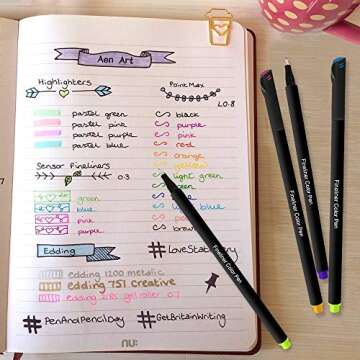 Aen Art
Highlighters
pastel green
pastel pink
pastel purple
pastel blue
Sensor Fineliners
0.3
green
blue
pink
purple
Point Max
0.8
black
purple
pink
red
orange
yellow
light green
green
blue
Edding
edding 1200 metalic
edding 751 Creative
gel roller 0.7
#LoveStationery
#PenAndPencilDay
#GetBritainWriting
nu:
Fineliner Color Pen
Fineliner Color Pen
Fineliner Color Pen
Fineliner Color Pen